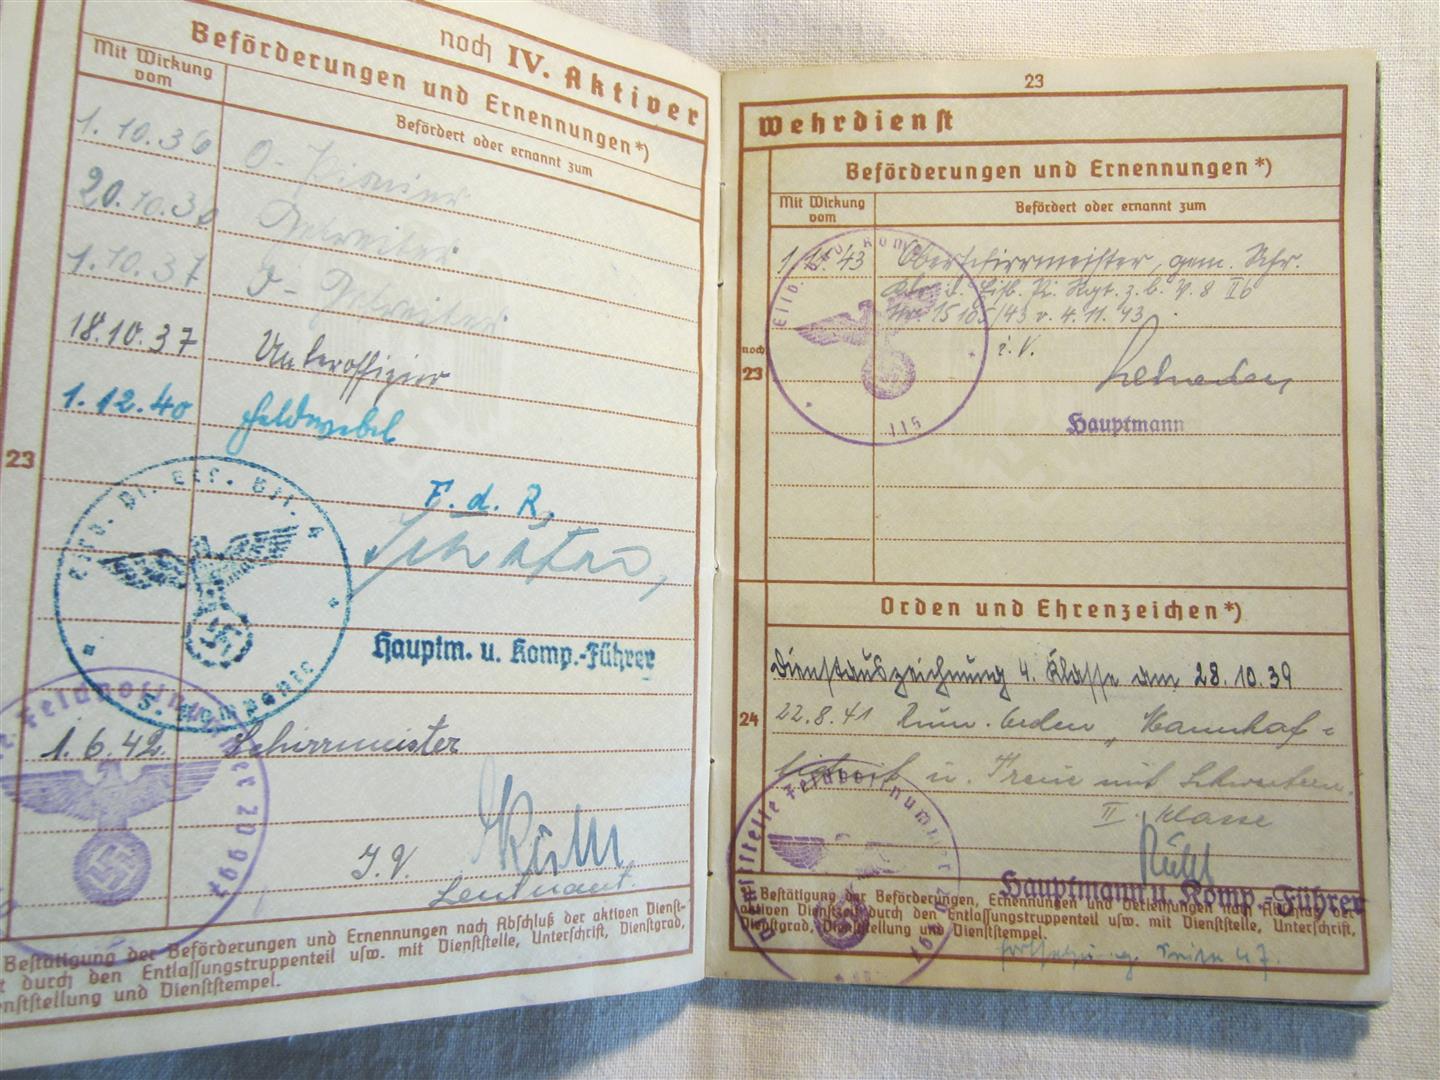 noch IV. Aktiver
Beförderungen und Ernennungen*)
Mit Wirkung
vom
Befördert oder ernannt zum
1.10.36 O-Pionier
20.10.36 Gefreiter
1.10.37 Gefreiter
18.10.37 Unteroffizier
1.12.40 Feldwebel
23
F. d. R.
Hauptm. u. Komp.-Führer
1.6.42 Schirrmeister
J.V.
Leutnant.
Bestätigung der Beförderungen und Ernennungen nach Abschluß der aktiven Dienst-
durch den Entlassungstruppenteil usw. mit Dienststelle, Unterschrift, Dienstgrad,
und Dienststempel.
23
Wehrdienst
Beförderungen und Ernennungen*)
Mit Wirkung
vom
Befördert oder ernannt zum
43 Oberschirrmeister, gem.
Pi. Rgt. z. b. V. 8 II b
15105/43 v. 4.11.43.
noch
23
i. V.
Hauptmann
115
Orden und Ehrenzeichen*)
Dienstauszeichnung 4. Klasse am 28.10.39
24
22.8.41 Rum. Orden „Mannhaf-
u. Treue mit Schwertern"
II. Klasse
Hauptmann u. Komp.-Führer
Dienststelle Feldpostnummer
Bestätigung der Beförderungen, Ernennungen und Verleihungen nach Abschluß der
aktiven Dienstzeit durch den Entlassungstruppenteil usw. mit Dienststelle, Unterschrift,
Dienstgrad, Dienststellung und Dienststempel.
Fortsetzung Seite 47.